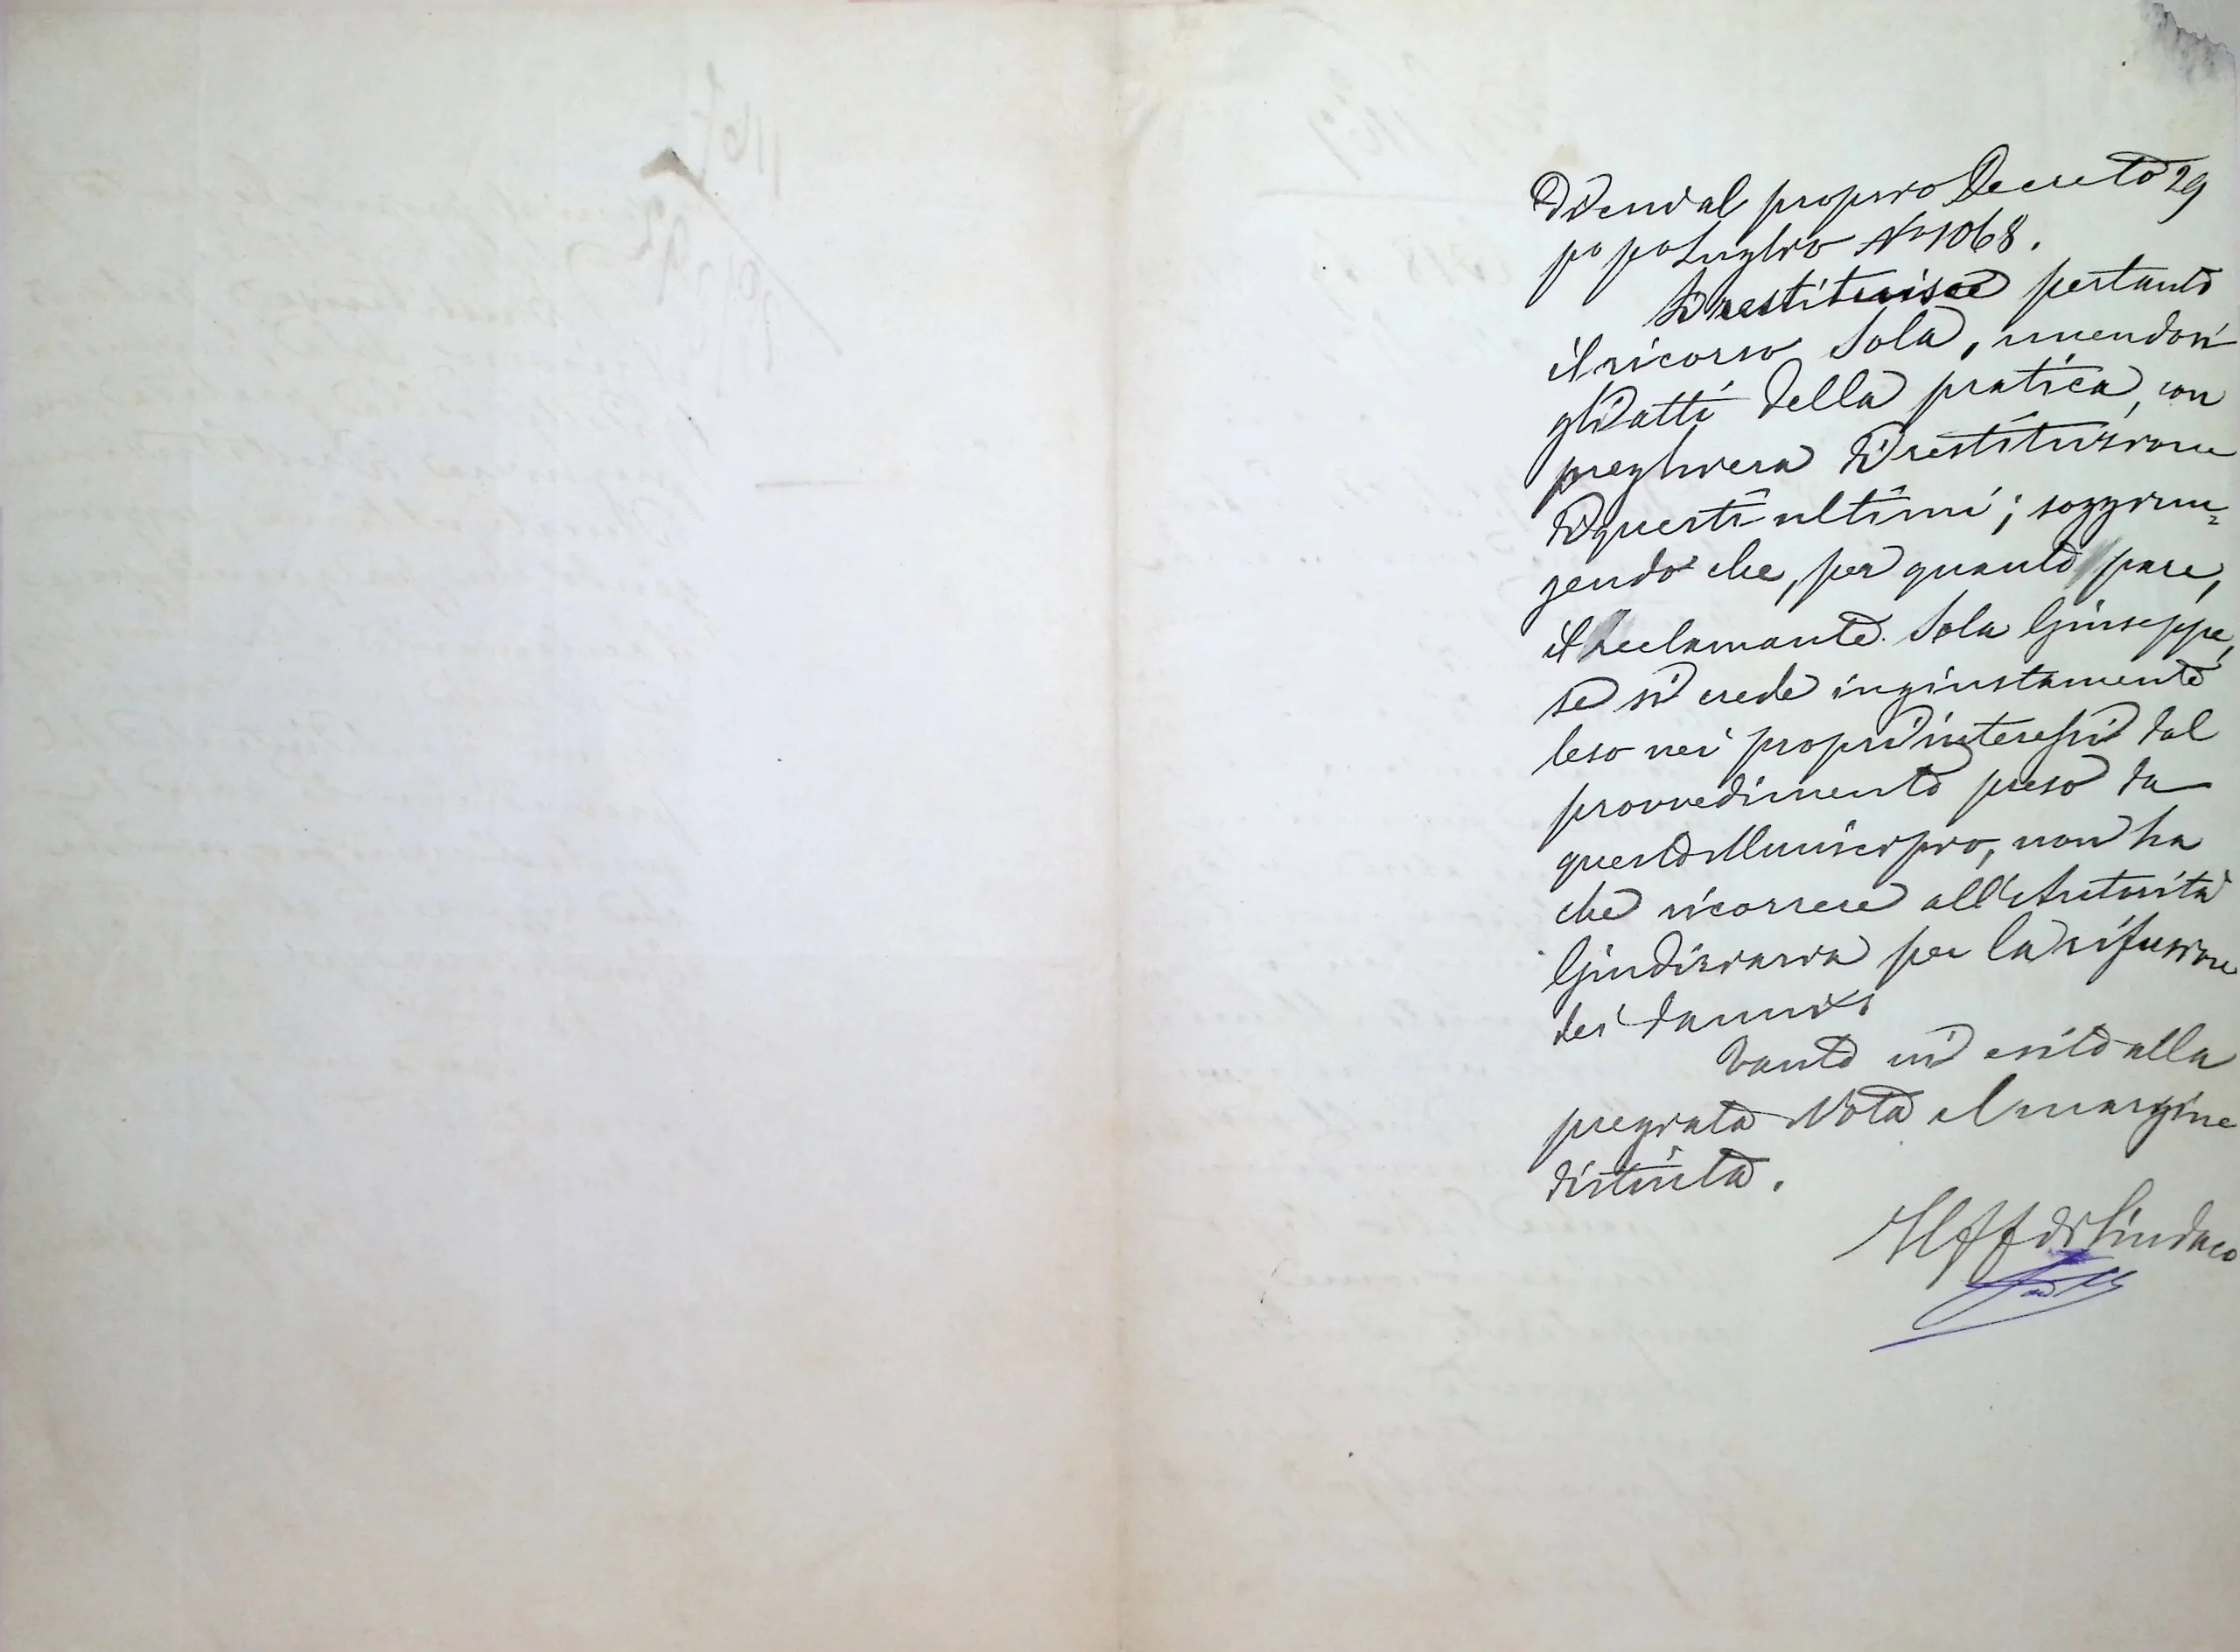 di cui al proprio Decreto 29
po po Luglio No 1068.
Si restituisce pertanto
il ricorso Sola, unendosi
gli atti della pratica, con
preghiera di restituzione
di questi ultimi; soggiun=
gendo che, per quanto pare,
il reclamante Sola Giuseppe,
se si crede ingiustamente
leso nei propri interessi dal
provvedimento preso da
questo Municipio, non ha
che ricorrere all'Autorità
Giudiziaria per la rifusione
dei danni
Tanto in esito alla
pregiata Nota al margine
distinta.
Il ff di Sindaco